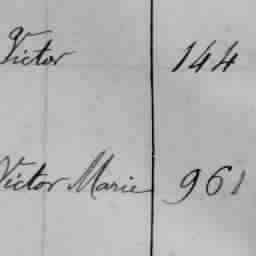 Victor 144
Victor Marie 961